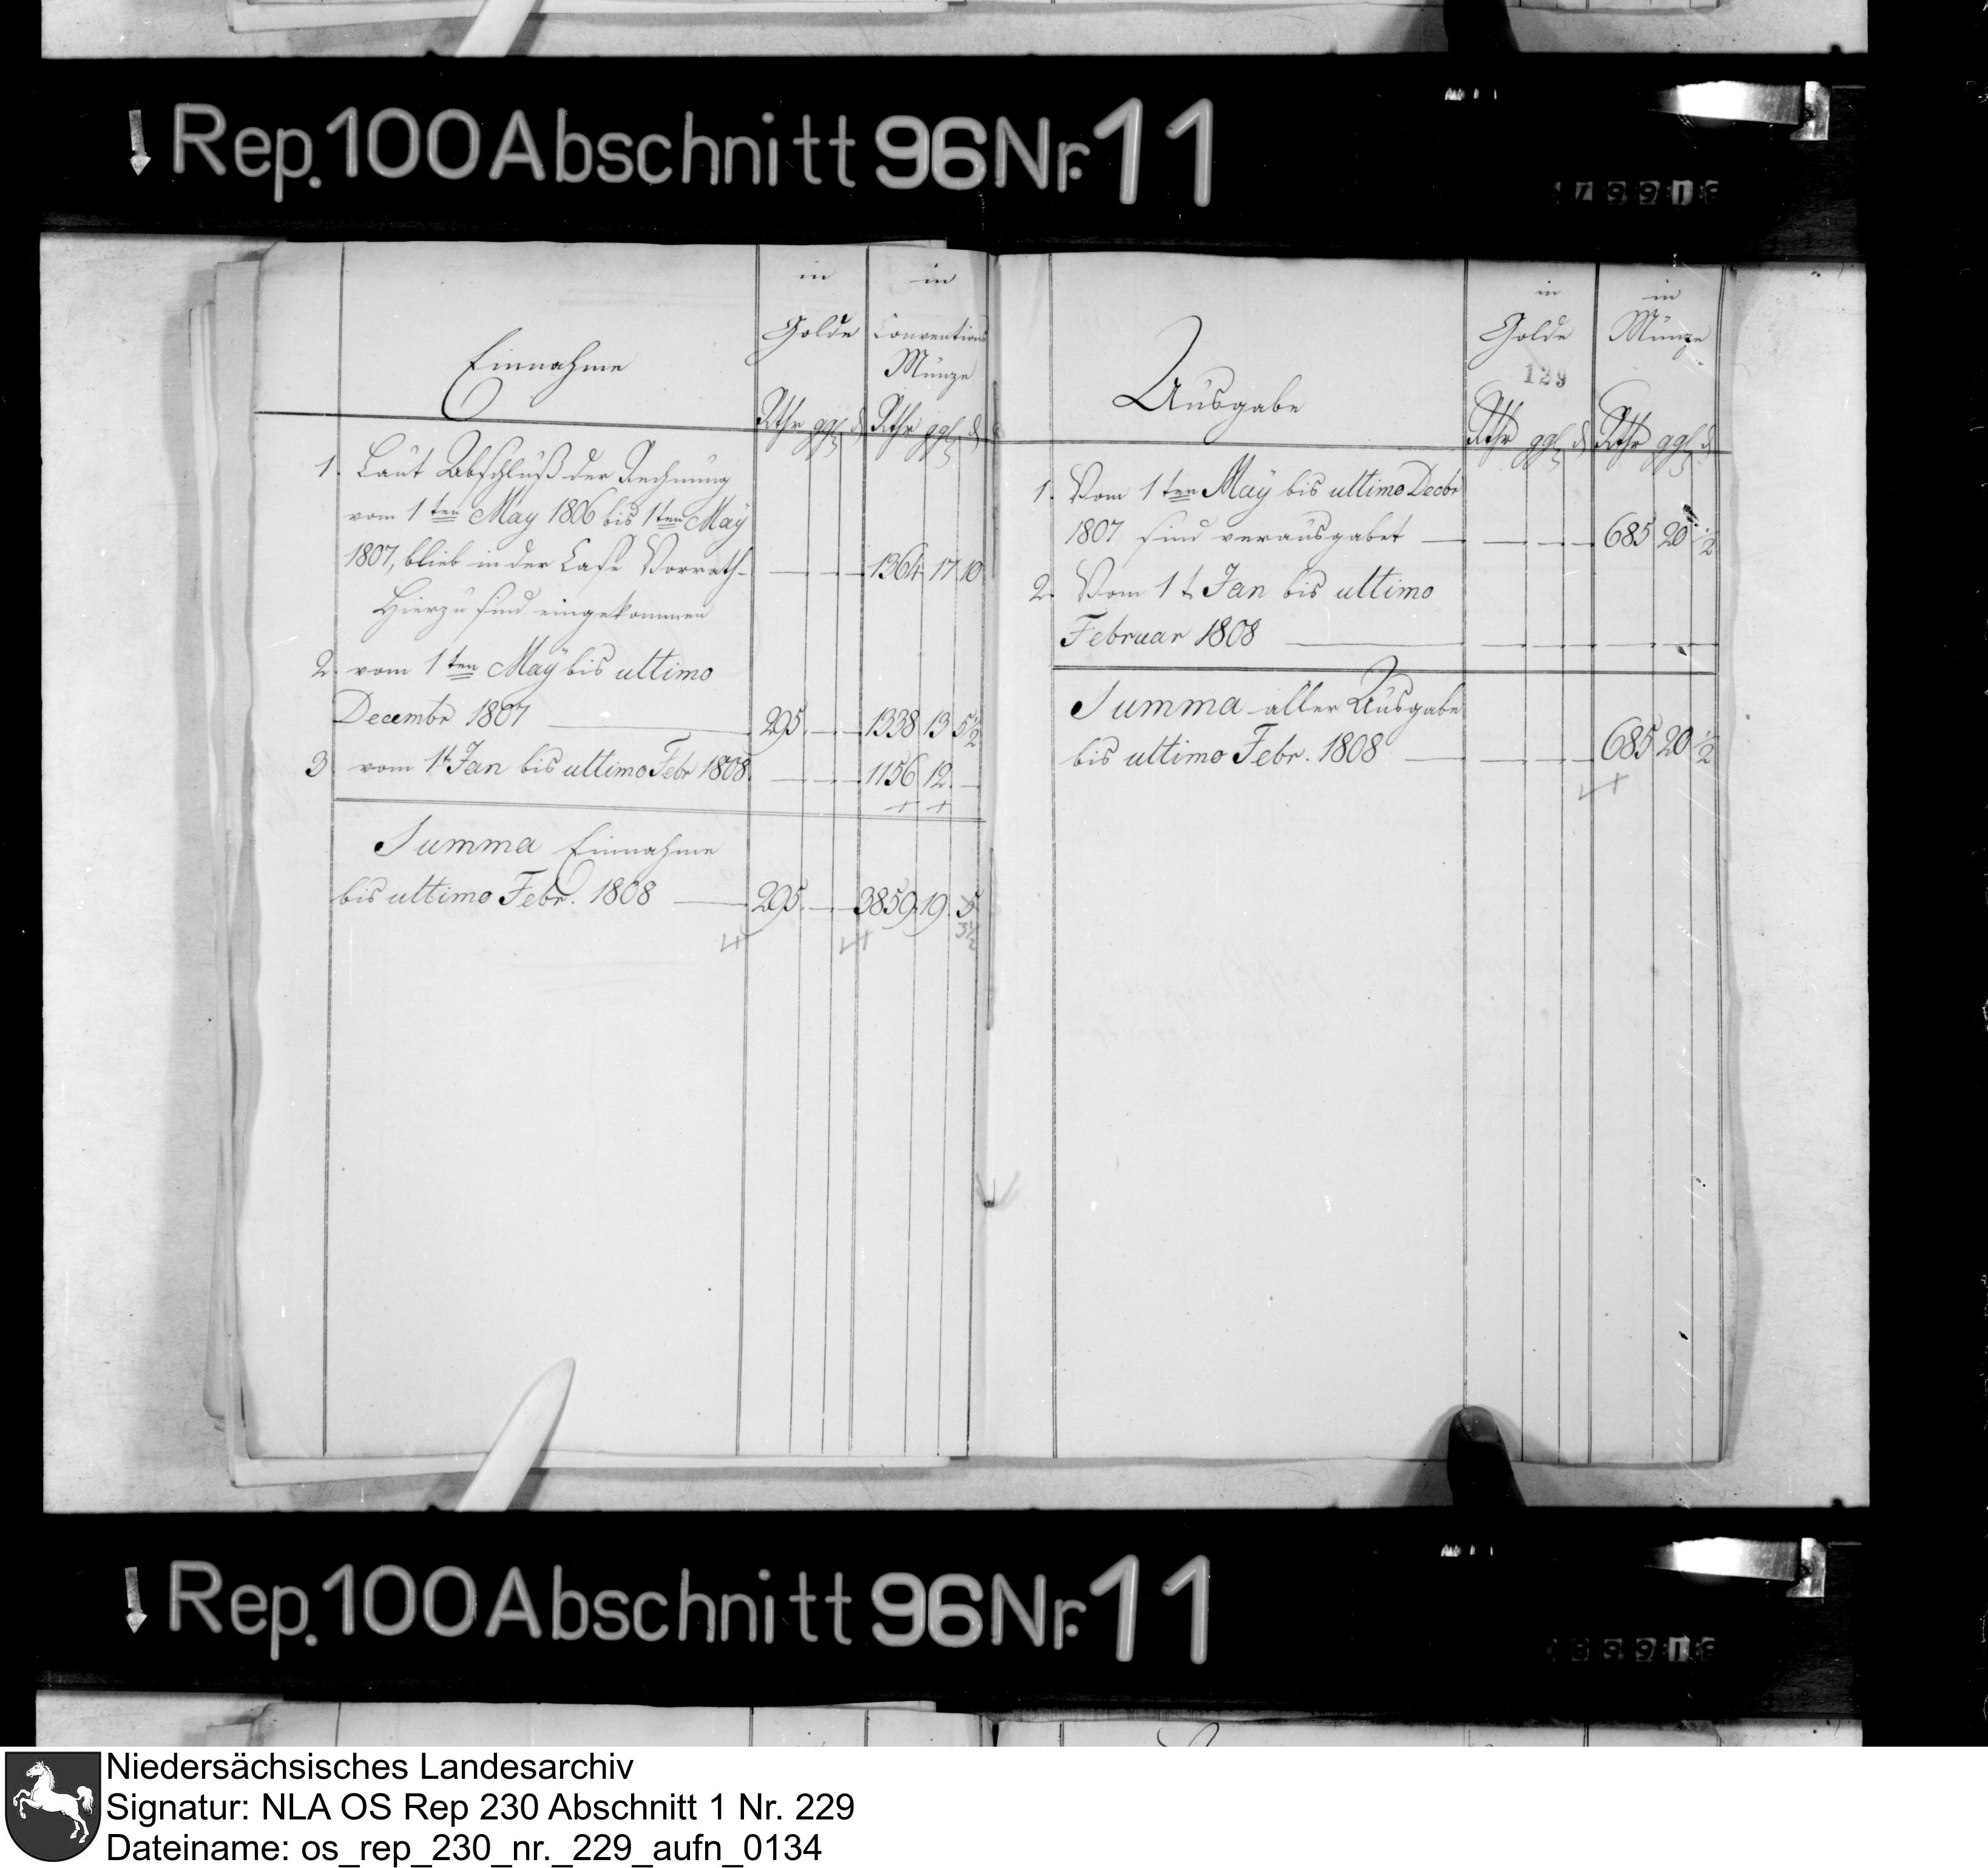 Rep. 100 Abschnitt 96 Nr. 11
Einnahme
in
Golde
in
Conventions
Münze
Rthr ggl d
Rthr ggl d
1. Laut Abschluß der Rechnung
vom 1ten May 1806 bis 1ten May
1807, blieb in der Casse Vorrath — — — 1364 17 10
Hierzu sind eingekommen
2. vom 1ten May bis ultimo
Decembr 1807 — 295. — — 1338 13 5½
3 vom 1t Jan bis ultimo Febr 1808. — — — 1156 12. —
Summa Einnahme
bis ultimo Febr. 1808 — 295. — — 3859. 19. 5
3½
Ausgabe
in
Golde
in
Münze
129
Rthr ggl d
Rthr ggl d
1. Vom 1ten May bis ultimo Decbr
1807 sind verausgabet — — — — 685 20 ½
2. Vom 1t Jan bis ultimo
Februar 1808 — — — — — — —
Summa aller Ausgabe
bis ultimo Febr. 1808 — — — — 685 20 ½
Rep. 100 Abschnitt 96 Nr. 11
Niedersächsisches Landesarchiv
Signatur: NLA OS Rep 230 Abschnitt 1 Nr. 229
Dateiname: os_rep_230_nr._229_aufn_0134